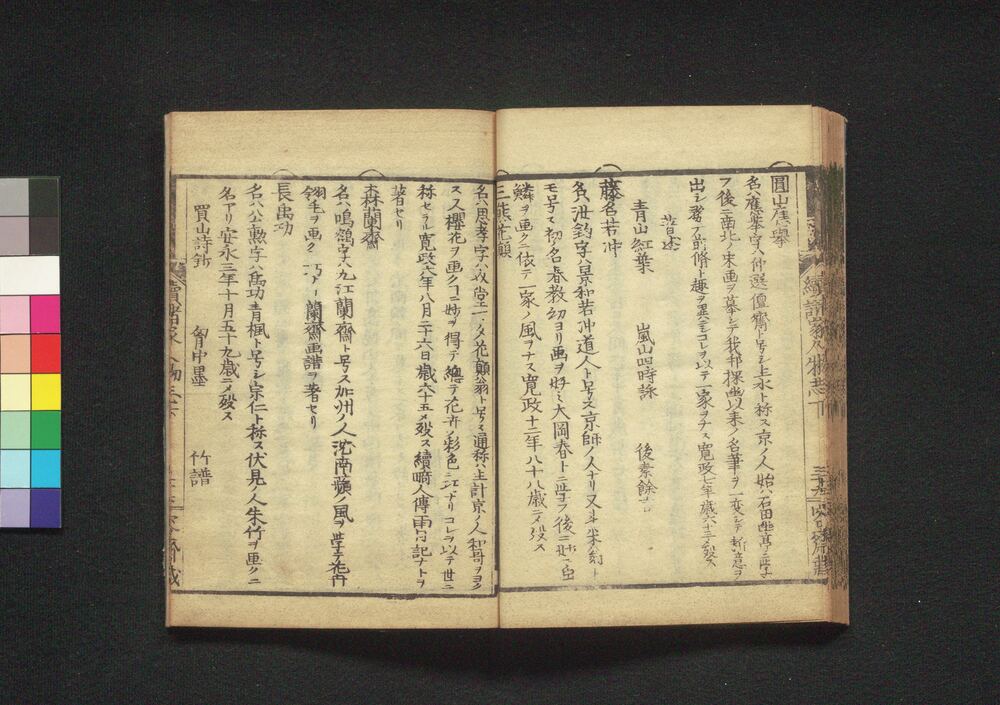 續諸家人物志下
圓山應擧
名ハ應擧字ハ仲選僊齋ト号シ主水ト称ス京ノ人始ハ石田幽亭ニ学
フ後ニ南北ノ宋画ヲ慕シテ我邦探幽以来ノ名筆ヲ一変シテ新意ヲ
出シ務テ前脩ト趣ヲ異ニシコレヲ以テ一家ヲナス寛政七年歳六十三ニ〆殁ス
著述
青山紅葉 嵐山四時詠 後素餘
藤若冲
名汝鈞字ハ景和若沖道人ト号ス京師ノ人ナリ又斗米
モ号ス初名春教幼ヨリ画ヲ好ミ大岡春卜ニ学フ後ニ
鱗ヲ画クニ依テ一家ノ風ヲナス寛政十二年八十八歳ニ〆殁ス
三熊花顛
名ハ思孝字ハ 堂 花顛翁ト号ス通称ハ主計京ノ人和哥ヲヨク
ス又櫻花ヲ画クニ妙ヲ得テ總テ花卉ノ彩色ニ コレヲ以テ世ニ
称セラル寛政六年八月二十六日歳六十五〆殁ス續畸人傳雨 記ナトヲ
著セリ
森蘭齋
名ハ鳴鶴字ハ九江蘭齋ト号ス加州ノ人沈南蘋ノ風ヲ学テ花卉
翎毛ヲ画ク 巧ナリ蘭齋画譜ヲ著セリ
長禹功
名ハ公勲字ハ禹功青楓ト号シ宗仁ト称ス伏見ノ人朱竹ヲ画クニ
名アリ安永三年十月五十九歳ニ〆殁ス
買山詩鈔 胸中墨 竹譜
續諸家人物志下